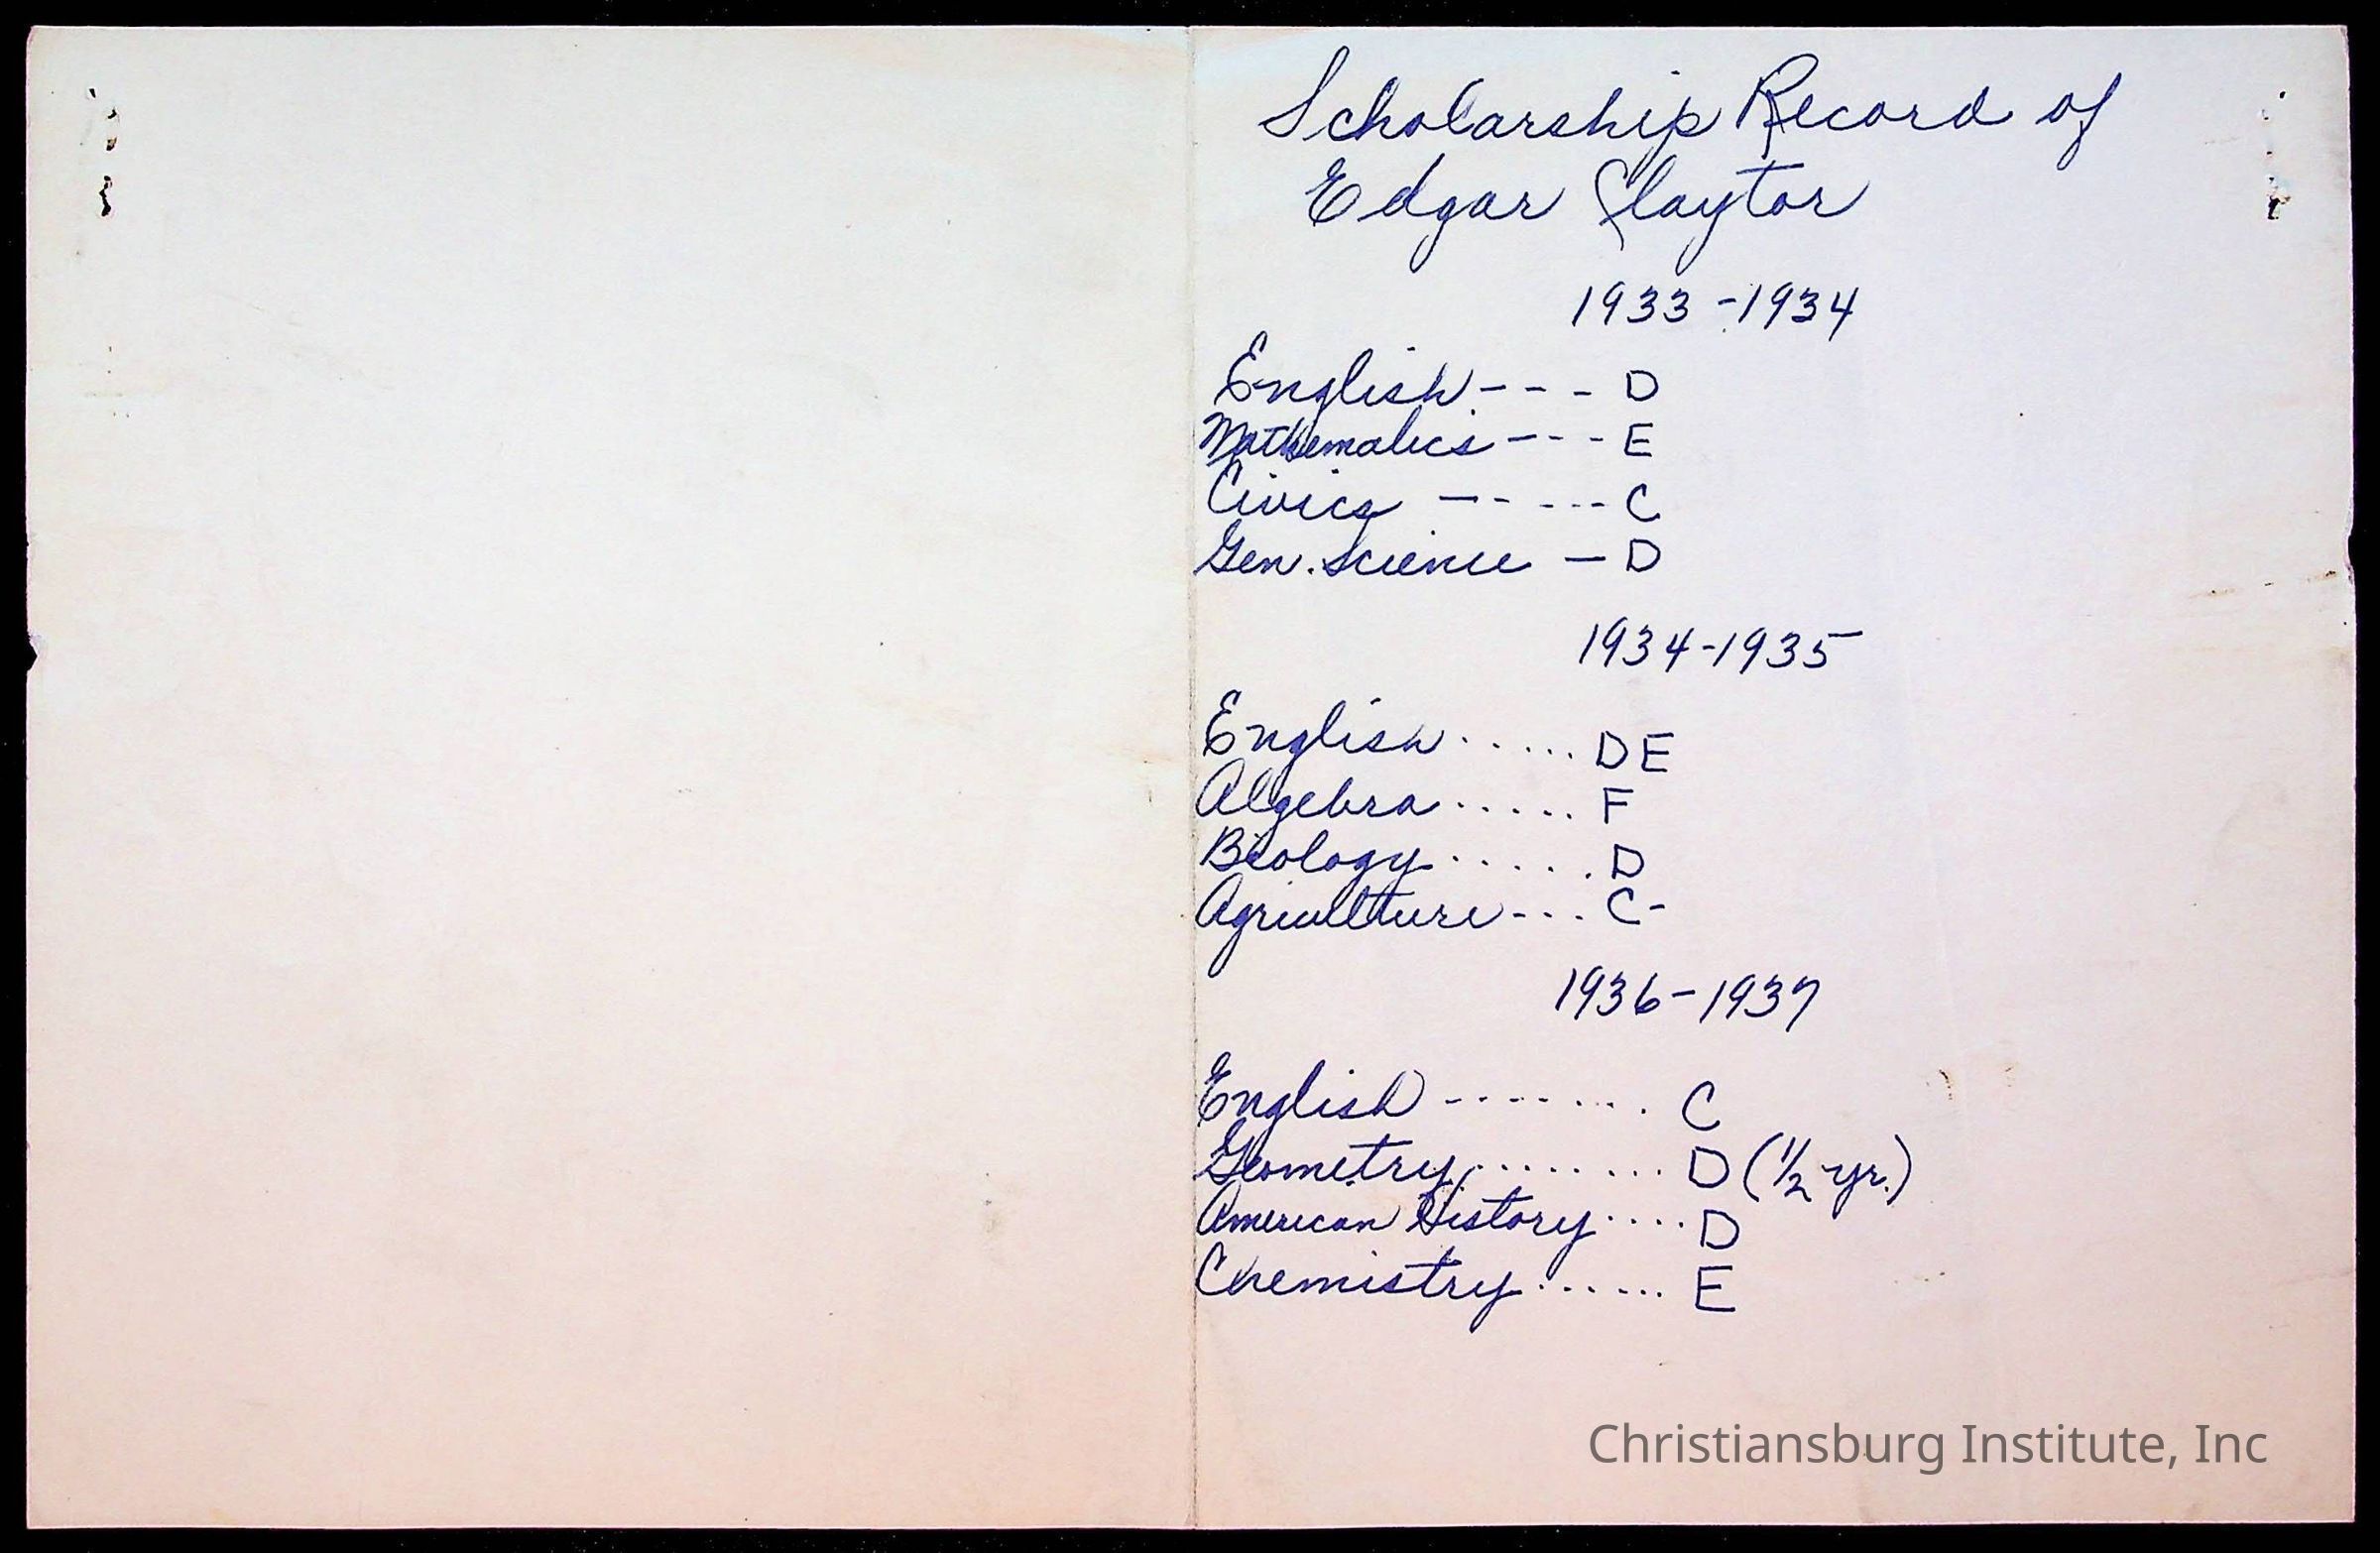 Scholarship Record of
Edgar Claytor
1933-1934
English - - - D
Mathematics - - - E
Civics - - - - - C
Gen. Science - D
1934-1935
English ...... DE
Algebra ..... F
Biology ...... D
Agriculture - - - C-
1936-1937
English - - - - - - - . C
Geometry ......... D (1/2 yr.)
American History .... D
Chemistry ...... E
Christiansburg Institute, Inc